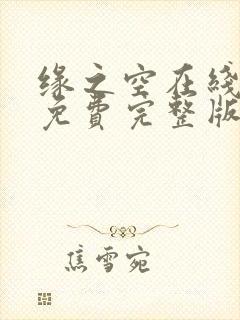 缘之空在线
免費完整版
焦雪宛